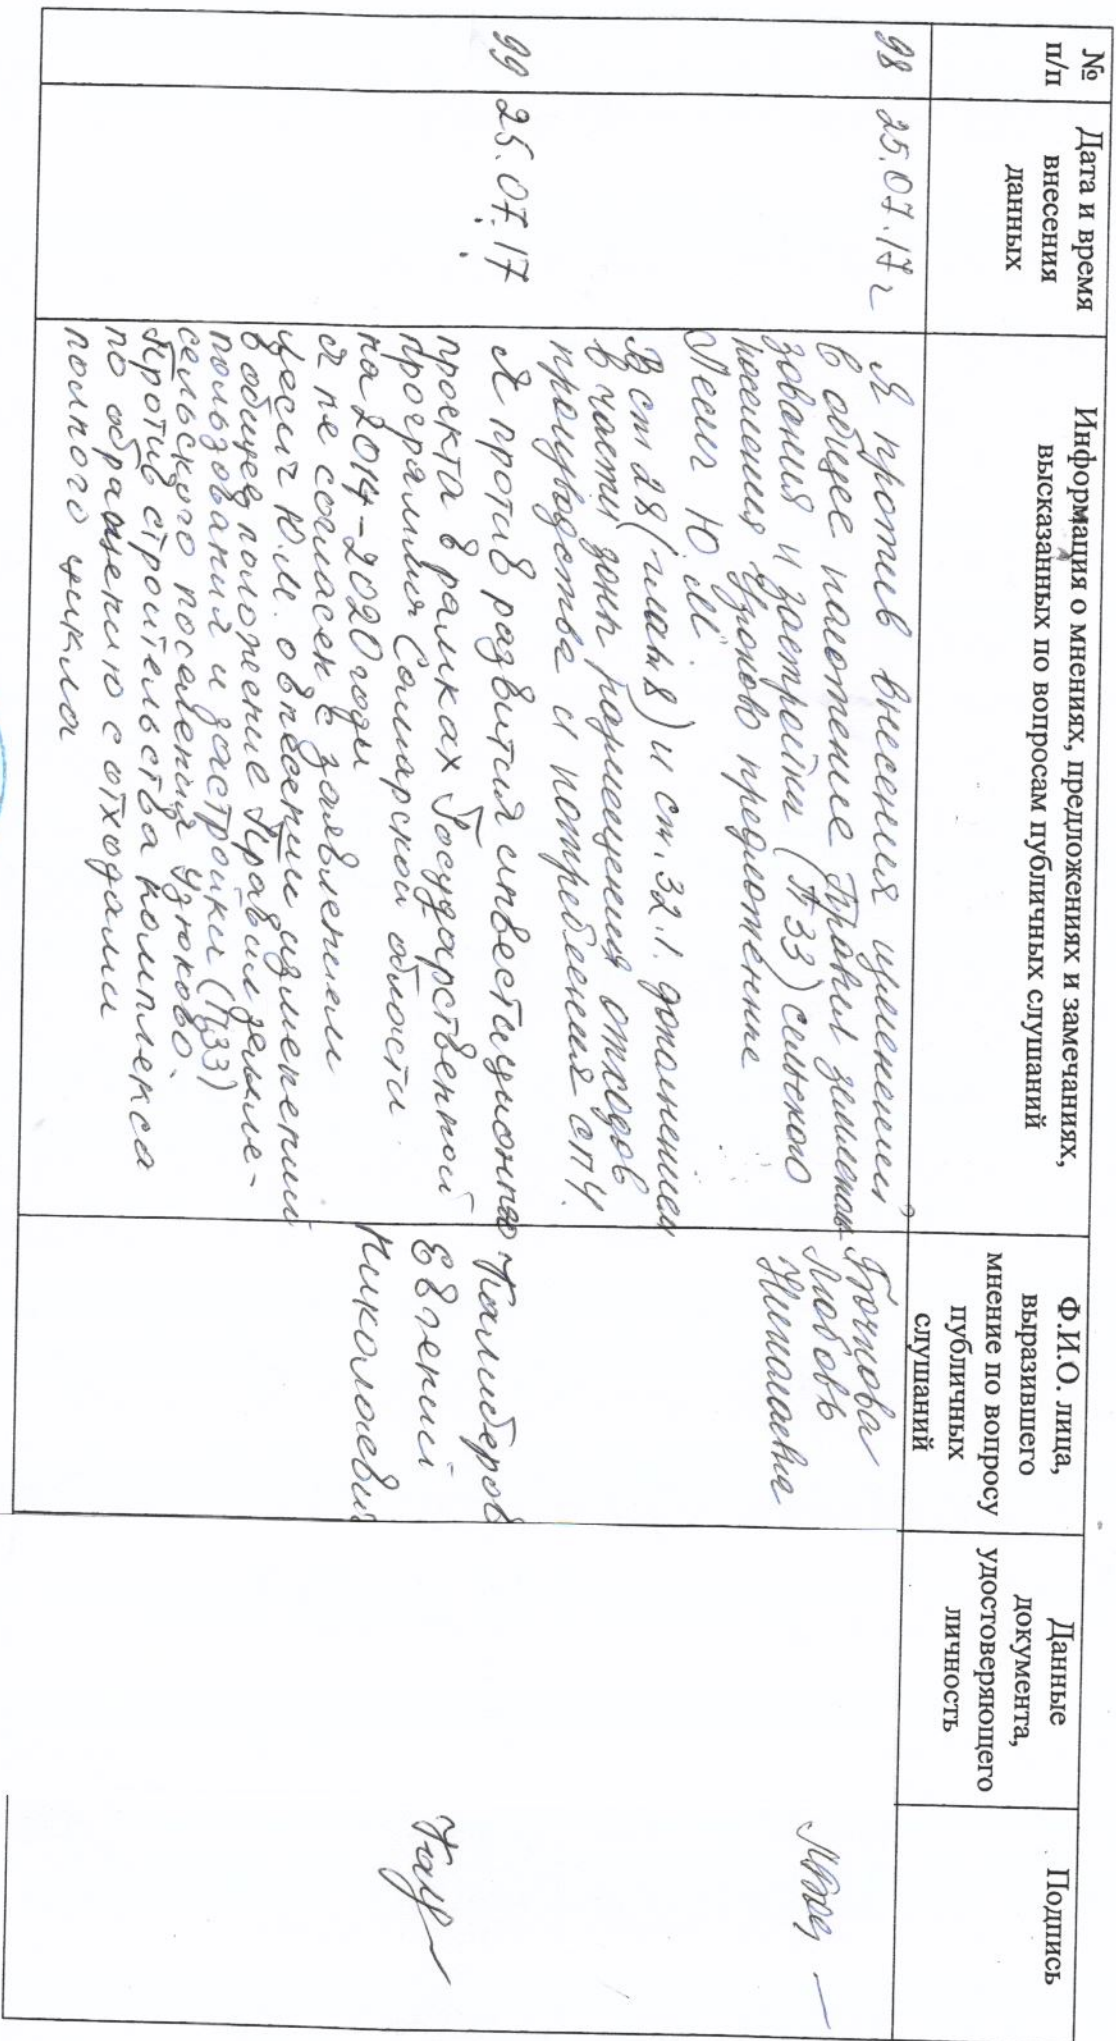 № п/п
Дата и время внесения данных
Информация о мнениях, предложениях и замечаниях, высказанных по вопросам публичных слушаний
Ф.И.О. лица, выразившего мнение по вопросу публичных слушаний
Данные документа, удостоверяющего личность
Подпись
98
25.07.17г
Я против внесения изменений
в общее положение Правил землеполь-
зования и застройки (ПЗЗ) сельского
поселения Узюково предложение
Лесич Ю.М.
В ст 28 (глава 8) и ст. 32.1. дополнением
в части зоны размещения отходов
производства и потребления сп4.
Любовь
Николаевна
99
25.07.17
Я против развития инвестиционного
проекта в рамках Государственной
программы Самарской области
на 2014-2020 годы
Я не согласен с заявлением
Лесич Ю.М. о внесении изменений
в общее положение Правил земле-
пользования и застройки (ПЗЗ)
сельского поселения Узюково.
Против строительства комплекса
по обращению с отходами
полного цикла
Калиберов
Евгений
Николаевич